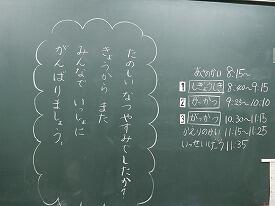 たのしい なつやすみでしたか?
きょうから また
みんなで いっしょに
がんばりましょう。
あさのかい 8:15〜
1 しぎょうしき 8:40〜9:15
2 がっかつ 9:25〜10:10
3 がっかつ 10:30〜11:15
かえりのかい 11:15〜11:25
いっせいげこう 11:35